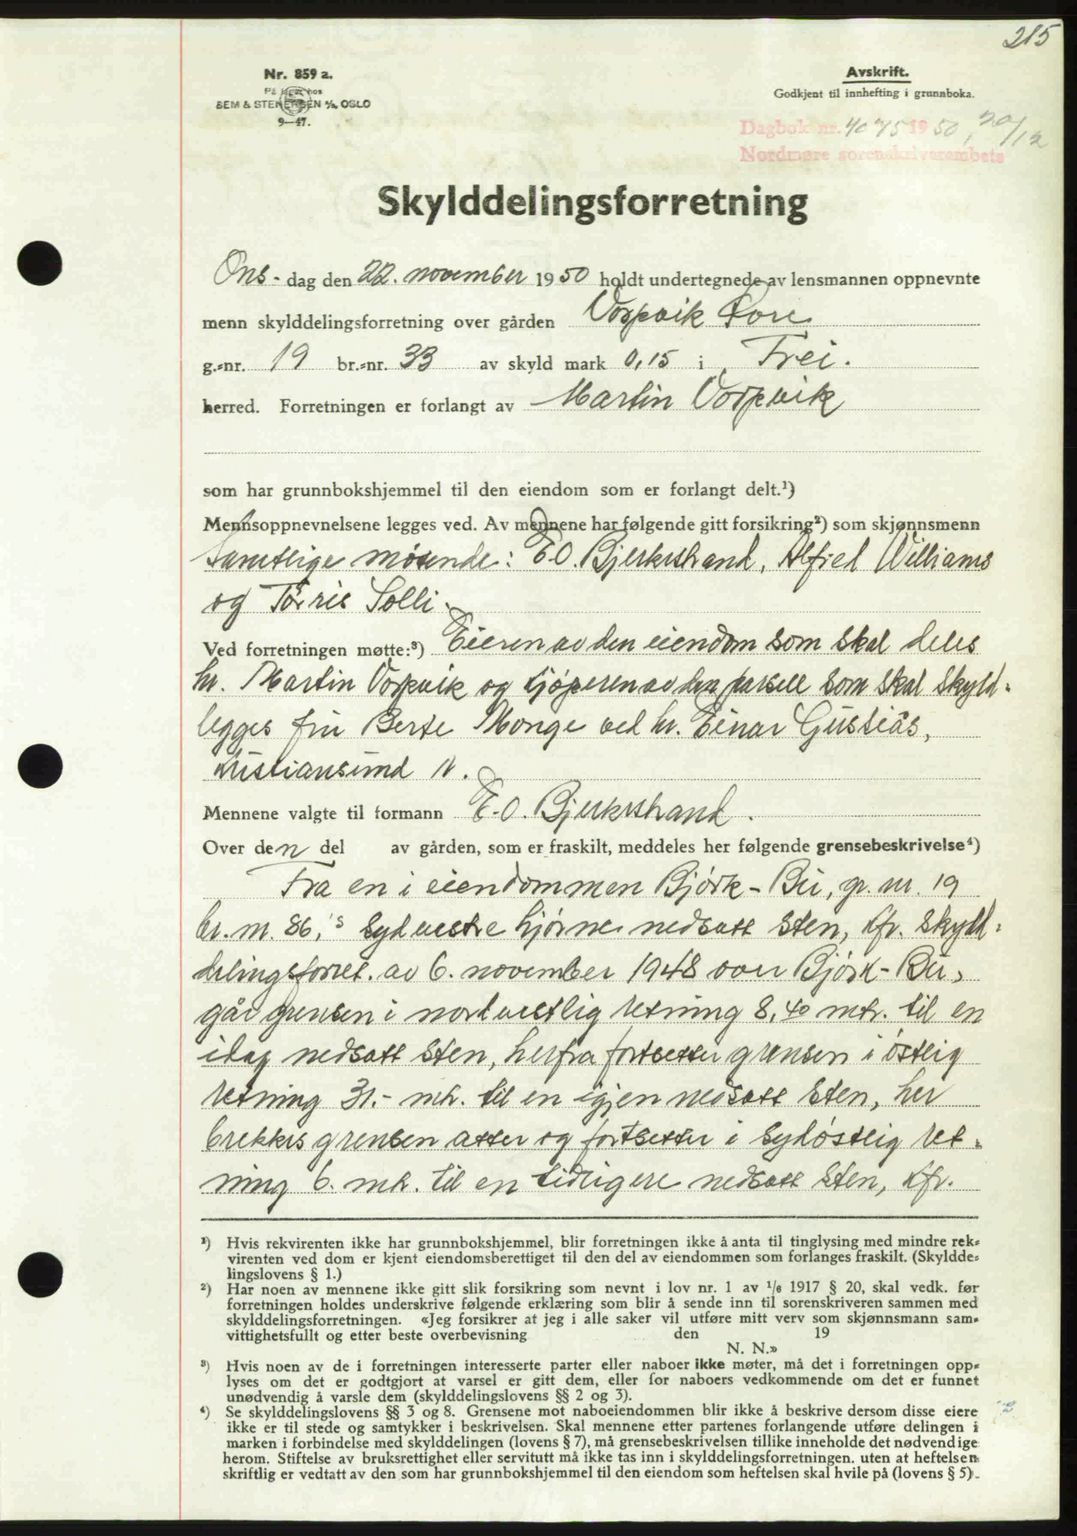 215
Nr. 859 a.
På lager hos
SEM & STENERSEN A/S, OSLO
9—47.
Avskrift.
Godkjent til innhefting i grunnboka.
Dagbok nr. 4075 1950, 20/12
Nordmøre sorenskriverembete
Skylddelingsforretning
Ons- dag den 22. november 1950 holdt undertegnede av lensmannen oppnevnte
menn skylddelingsforretning over gården Vorpvik
g.=nr. 19 br.=nr. 33 av skyld mark 0,15 i Frei.
herred. Forretningen er forlangt av Martin Vorpvik
som har grunnbokshjemmel til den eiendom som er forlangt delt.¹)
Mennsoppnevnelsene legges ved. Av mennene har følgende gitt forsikring²) som skjønnsmenn
Samtlige møtende: E.O. Bjerkestrand, Alfred Williams
og Torris Solli.
Ved forretningen møtte:³) Eieren av den eiendom som skal deles
hr. Martin Vorpvik og kjøperen av den parsell som skal skyld=
legges fru Berte Monge ved hr. Einar Gustiås,
Kristiansund N.
Mennene valgte til formann E.O. Bjerkestrand.
Over den del av gården, som er fraskilt, meddeles her følgende grensebeskrivelse⁴)
Fra en i eiendommen Bjørk-Bu, gr. nr. 19
br. nr. 86,'s sydvestre hjørne nedsatt sten, kfr. skyld=
delingsforret. av 6. november 1948 over Bjørk-Bu,
går grensen i nordvestlig retning 8,40 mtr. til en
idag nedsatt sten, herfra fortsetter grensen i østlig
retning 31.- mtr. til en igjen nedsatt sten, her
brekkes grensen atter og fortsetter i sydøstlig ret=
ning 6. mtr. til en tidligere nedsatt sten, kfr.
¹) Hvis rekvirenten ikke har grunnbokshjemmel, blir forretningen ikke å anta til tinglysing med mindre rek=
virenten ved dom er kjent eiendomsberettiget til den del av eiendommen som forlanges fraskilt. (Skyldde=
lingslovens § 1.)
²) Har noen av mennene ikke gitt slik forsikring som nevnt i lov nr. 1 av 1/6 1917 § 20, skal vedk. før
forretningen holdes underskrive følgende erklæring som blir å sende inn til sorenskriveren sammen med
skylddelingsforretningen. «Jeg forsikrer at jeg i alle saker vil utføre mitt verv som skjønnsmann sam=
vittighetsfullt og etter beste overbevisning den 19
N. N.»
³) Hvis noen av de i forretningen interesserte parter eller naboer ikke møter, må det i forretningen opp=
lyses om det er godtgjort at varsel er gitt dem, eller for naboers vedkommende om det er funnet
unødvendig å varsle dem (skylddelingslovens §§ 2 og 3).
⁴) Se skylddelingslovens §§ 3 og 8. Grensene mot naboeiendommen blir ikke å beskrive dersom disse eiere
ikke er til stede og samtykker i beskrivelsen. Skal mennene etter partenes forlangende utføre delingen i
marken i forbindelse med skylddelingen (lovens § 7), må grensebeskrivelsen tillike inneholde det nødvendige
herom. Stiftelse av bruksrettighet eller servitutt må ikke tas inn i skylddelingsforretningen. uten at heftelsen
skriftlig er vedtatt av den som har grunnbokshjemmel til den eiendom som heftelsen skal hvile på (lovens § 5).